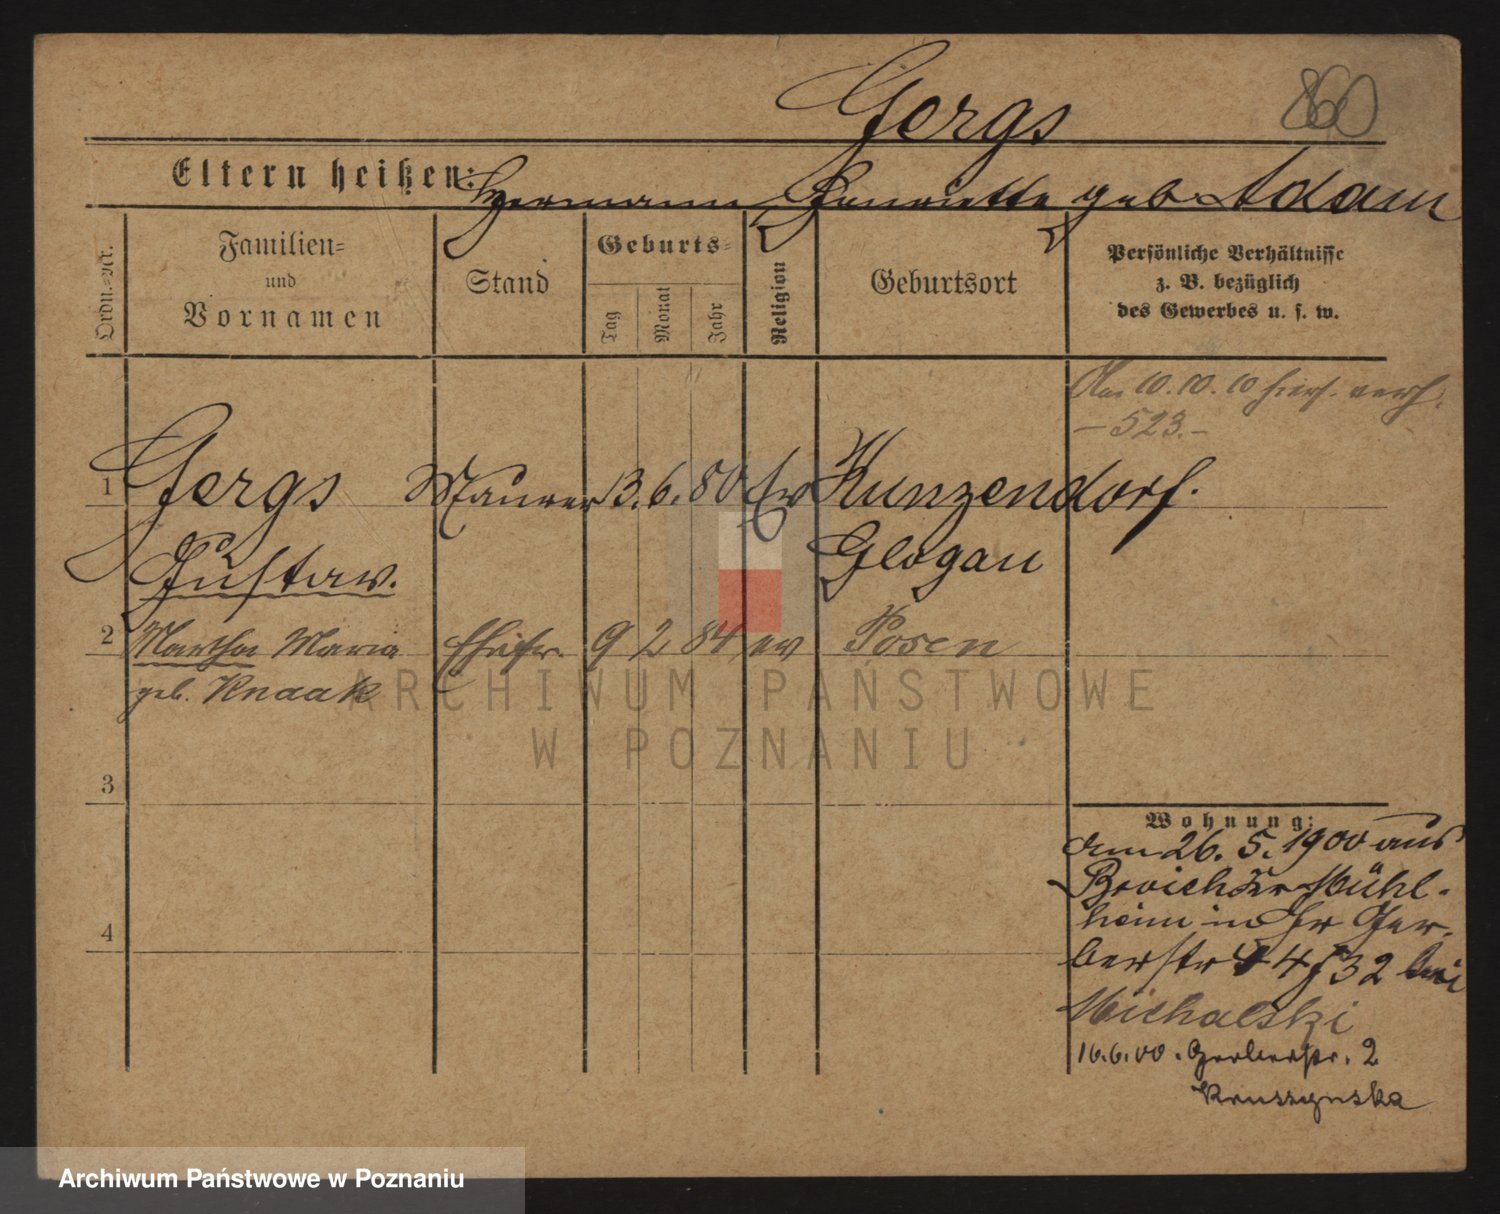 Gergs 860
Eltern heißen: Hermann Henriette geb. Adam
Ordn.-Nr.
Familien-
und
Vornamen
Stand
Geburts-
Tag
Monat
Jahr
Religion
Geburtsort
Persönliche Verhältnisse
z. B. bezüglich
des Gewerbes u. s. w.
10.10.10 verh.
– 523. –
1 Gergs Maurer 13. 6. 80 Ev Kunzendorf.
Gustav. Glogau
2 Martha Maria Ehefr. 9 2 84 ev Posen
geb. Knaak
3
4
Wohnung:
26. 5. 1900 aus
Broich Mühl-
heim Ger-
berstr 4 32 bei
Michalski
16.6.00. Gerberstr. 2
Kruszynska
ARCHIWUM PAŃSTWOWE
W POZNANIU
Archiwum Państwowe w Poznaniu